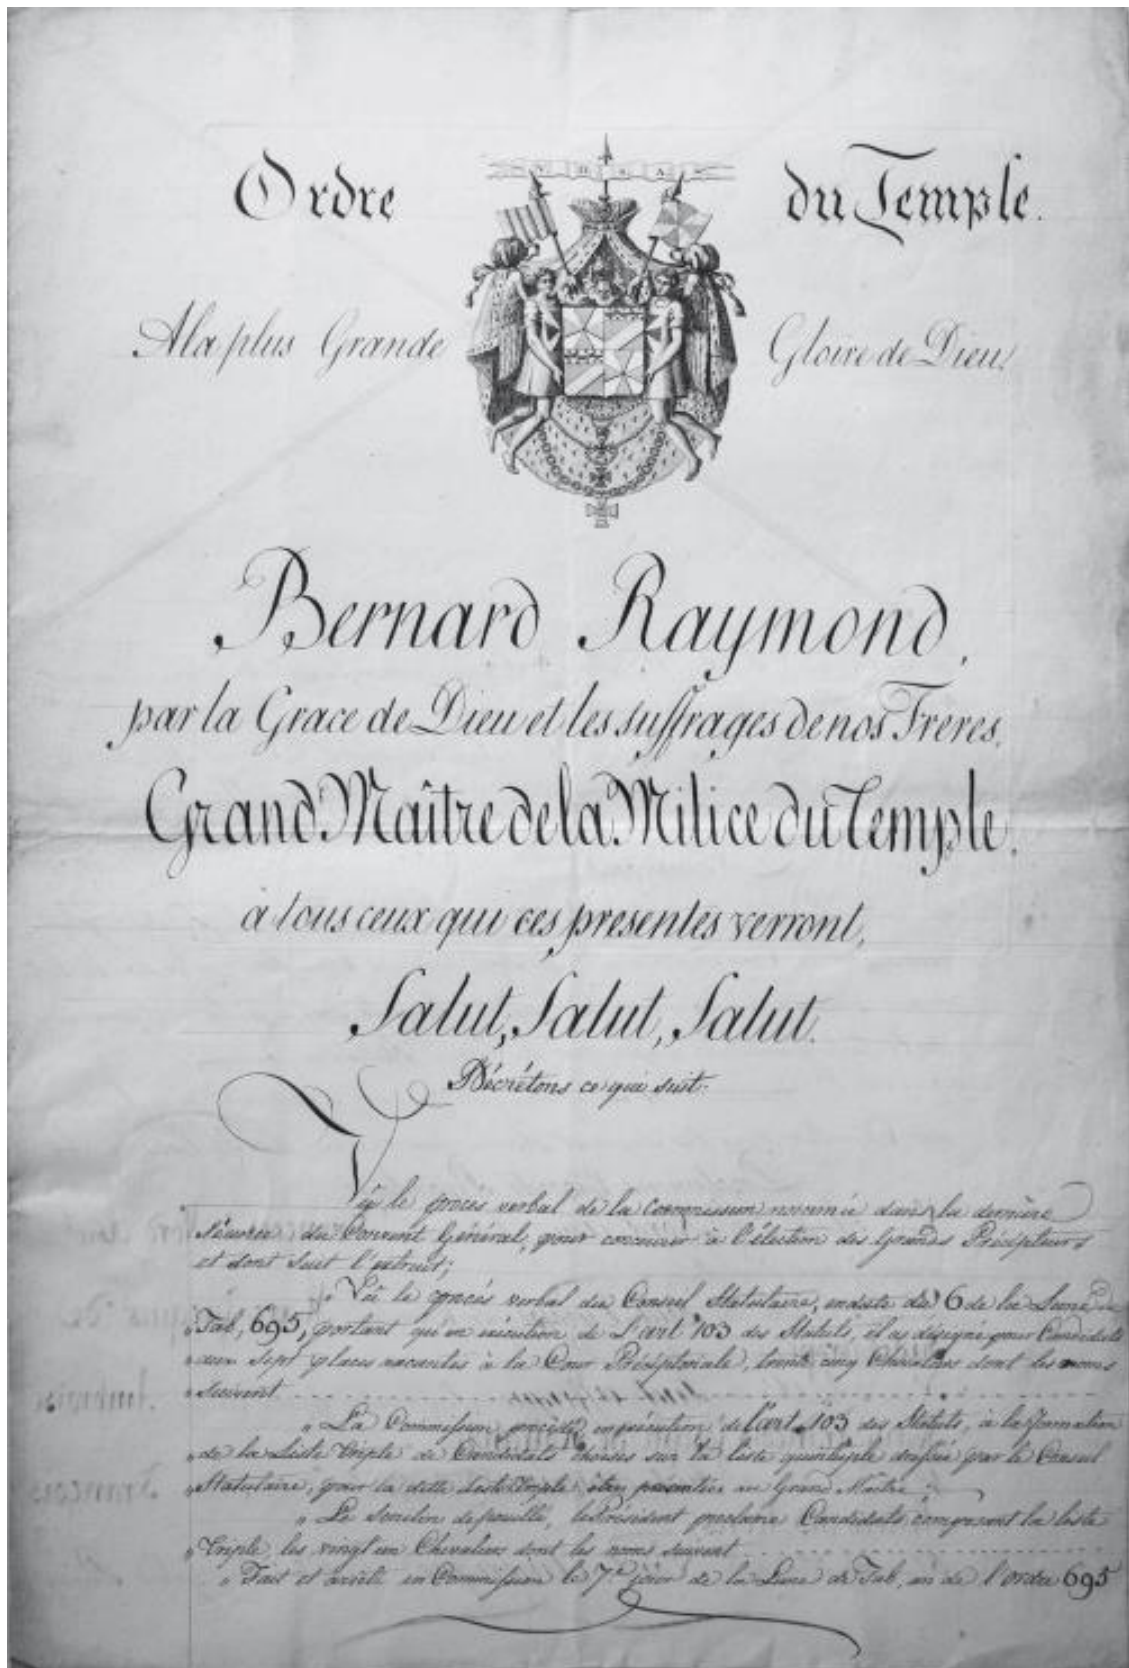 Ordre du Temple.
A la plus Grande Gloire de Dieu,
Bernard Raymond,
par la Grace de Dieu et les suffrages de nos Freres,
Grand Maître de la Milice du Temple.
à tous ceux qui ces presentes verront,
Salut, Salut, Salut.
Décrétons ce qui suit.
Vu le procès verbal de la Commission nommée dans la dernière
Séance du Convent Général, pour concourir à l'élection des Grands Précepteurs
et dont suit l'extrait;
" Vu le procès verbal du Conseil Statutaire, en date du 6 de la Lune de
" Tab, 695, portant qu'en exécution de L'art 103 des Statuts, il a désigné pour Candidats
" aux Sept places vacantes à la Cour Préceptoriale, trente cinq Chevaliers dont les noms
" suivent
" La Commission procède en exécution de l'art 103 des Statuts, à la formation
" de la Liste triple de Candidats choisis sur la liste quintuple dressée par le Conseil
" Statutaire, pour la dite Liste triple être présentée au Grand Maître
" Le Scrutin dépouillé, le Président proclame Candidats composant la liste
" triple les vingt un Chevaliers dont les noms suivent
" Fait et arrêté en Commission le 7e jour de la Lune de Tab, an de l'ordre 695